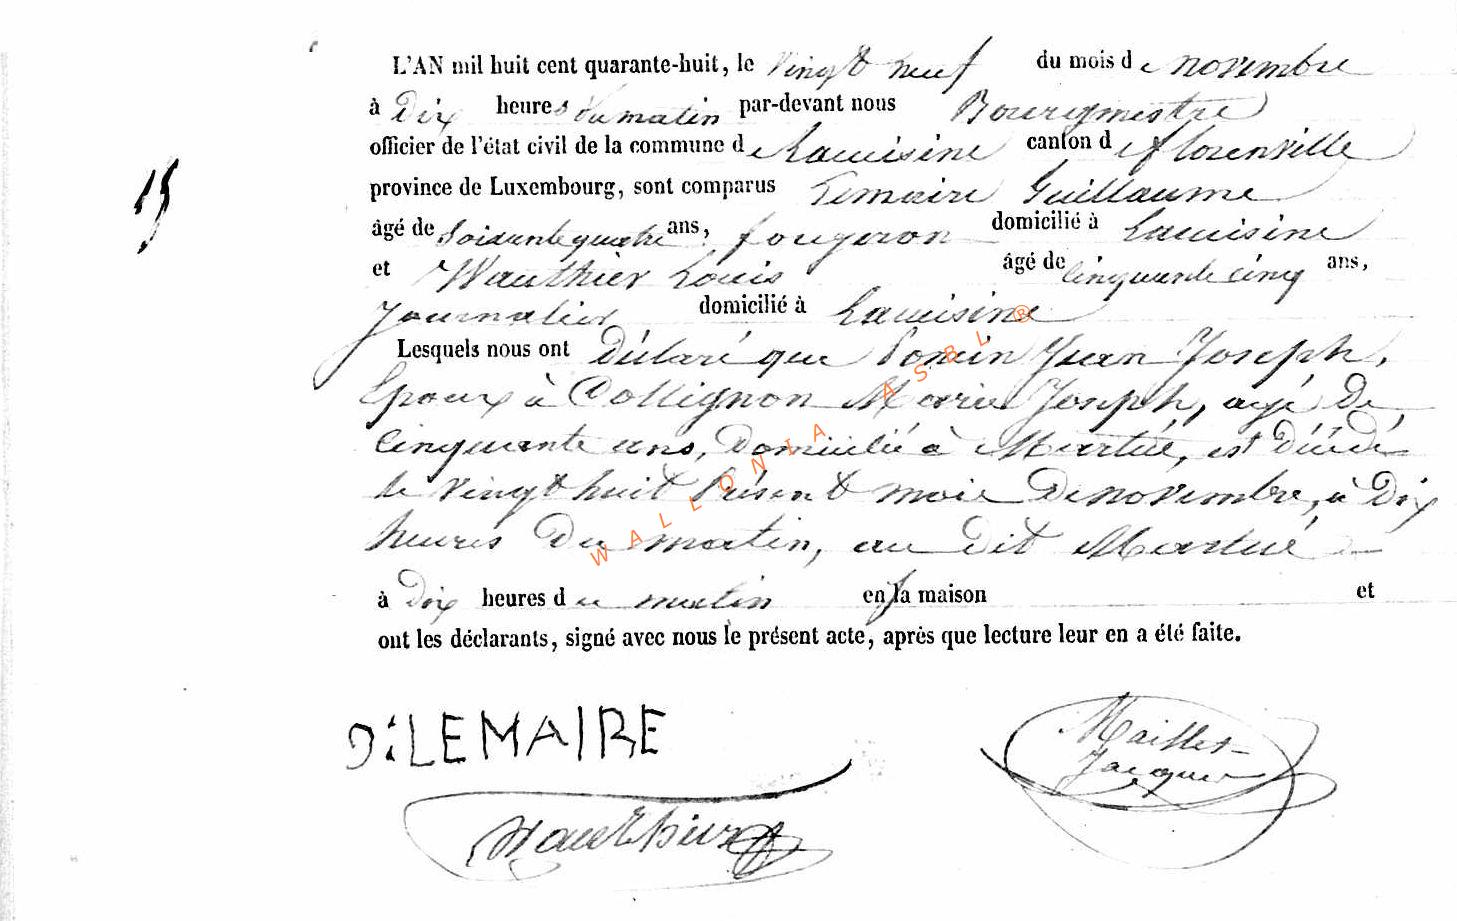 L'AN mil huit cent quarante-huit, le vingt neuf du mois de novembre
à Dix heures du matin par-devant nous Bourgmestre
15
officier de l'état civil de la commune de Lacuisine canton de florenville
province de Luxembourg, sont comparus Lemaire Guillaume
âgé de Soixante quatre ans, fougeron domicilié à Lacuisine
et Wauthier Louis âgé de cinquante cinq ans,
Journalier domicilié à Lacuisine
Lesquels nous ont Déclaré que Jean Joseph,
Epoux à Collignon Marie Joseph, agé De
cinquante ans, Domicilié à Martué, est Décédé
le vingt huit Présent mois De novembre, à Dix
heures Du matin, au dit Martué
à Dix heures du matin en sa maison et
ont les déclarants, signé avec nous le présent acte, après que lecture leur en a été faite.
WALLONIA ASBL ®
LEMAIRE
Maillet
Jacques
Wauthier